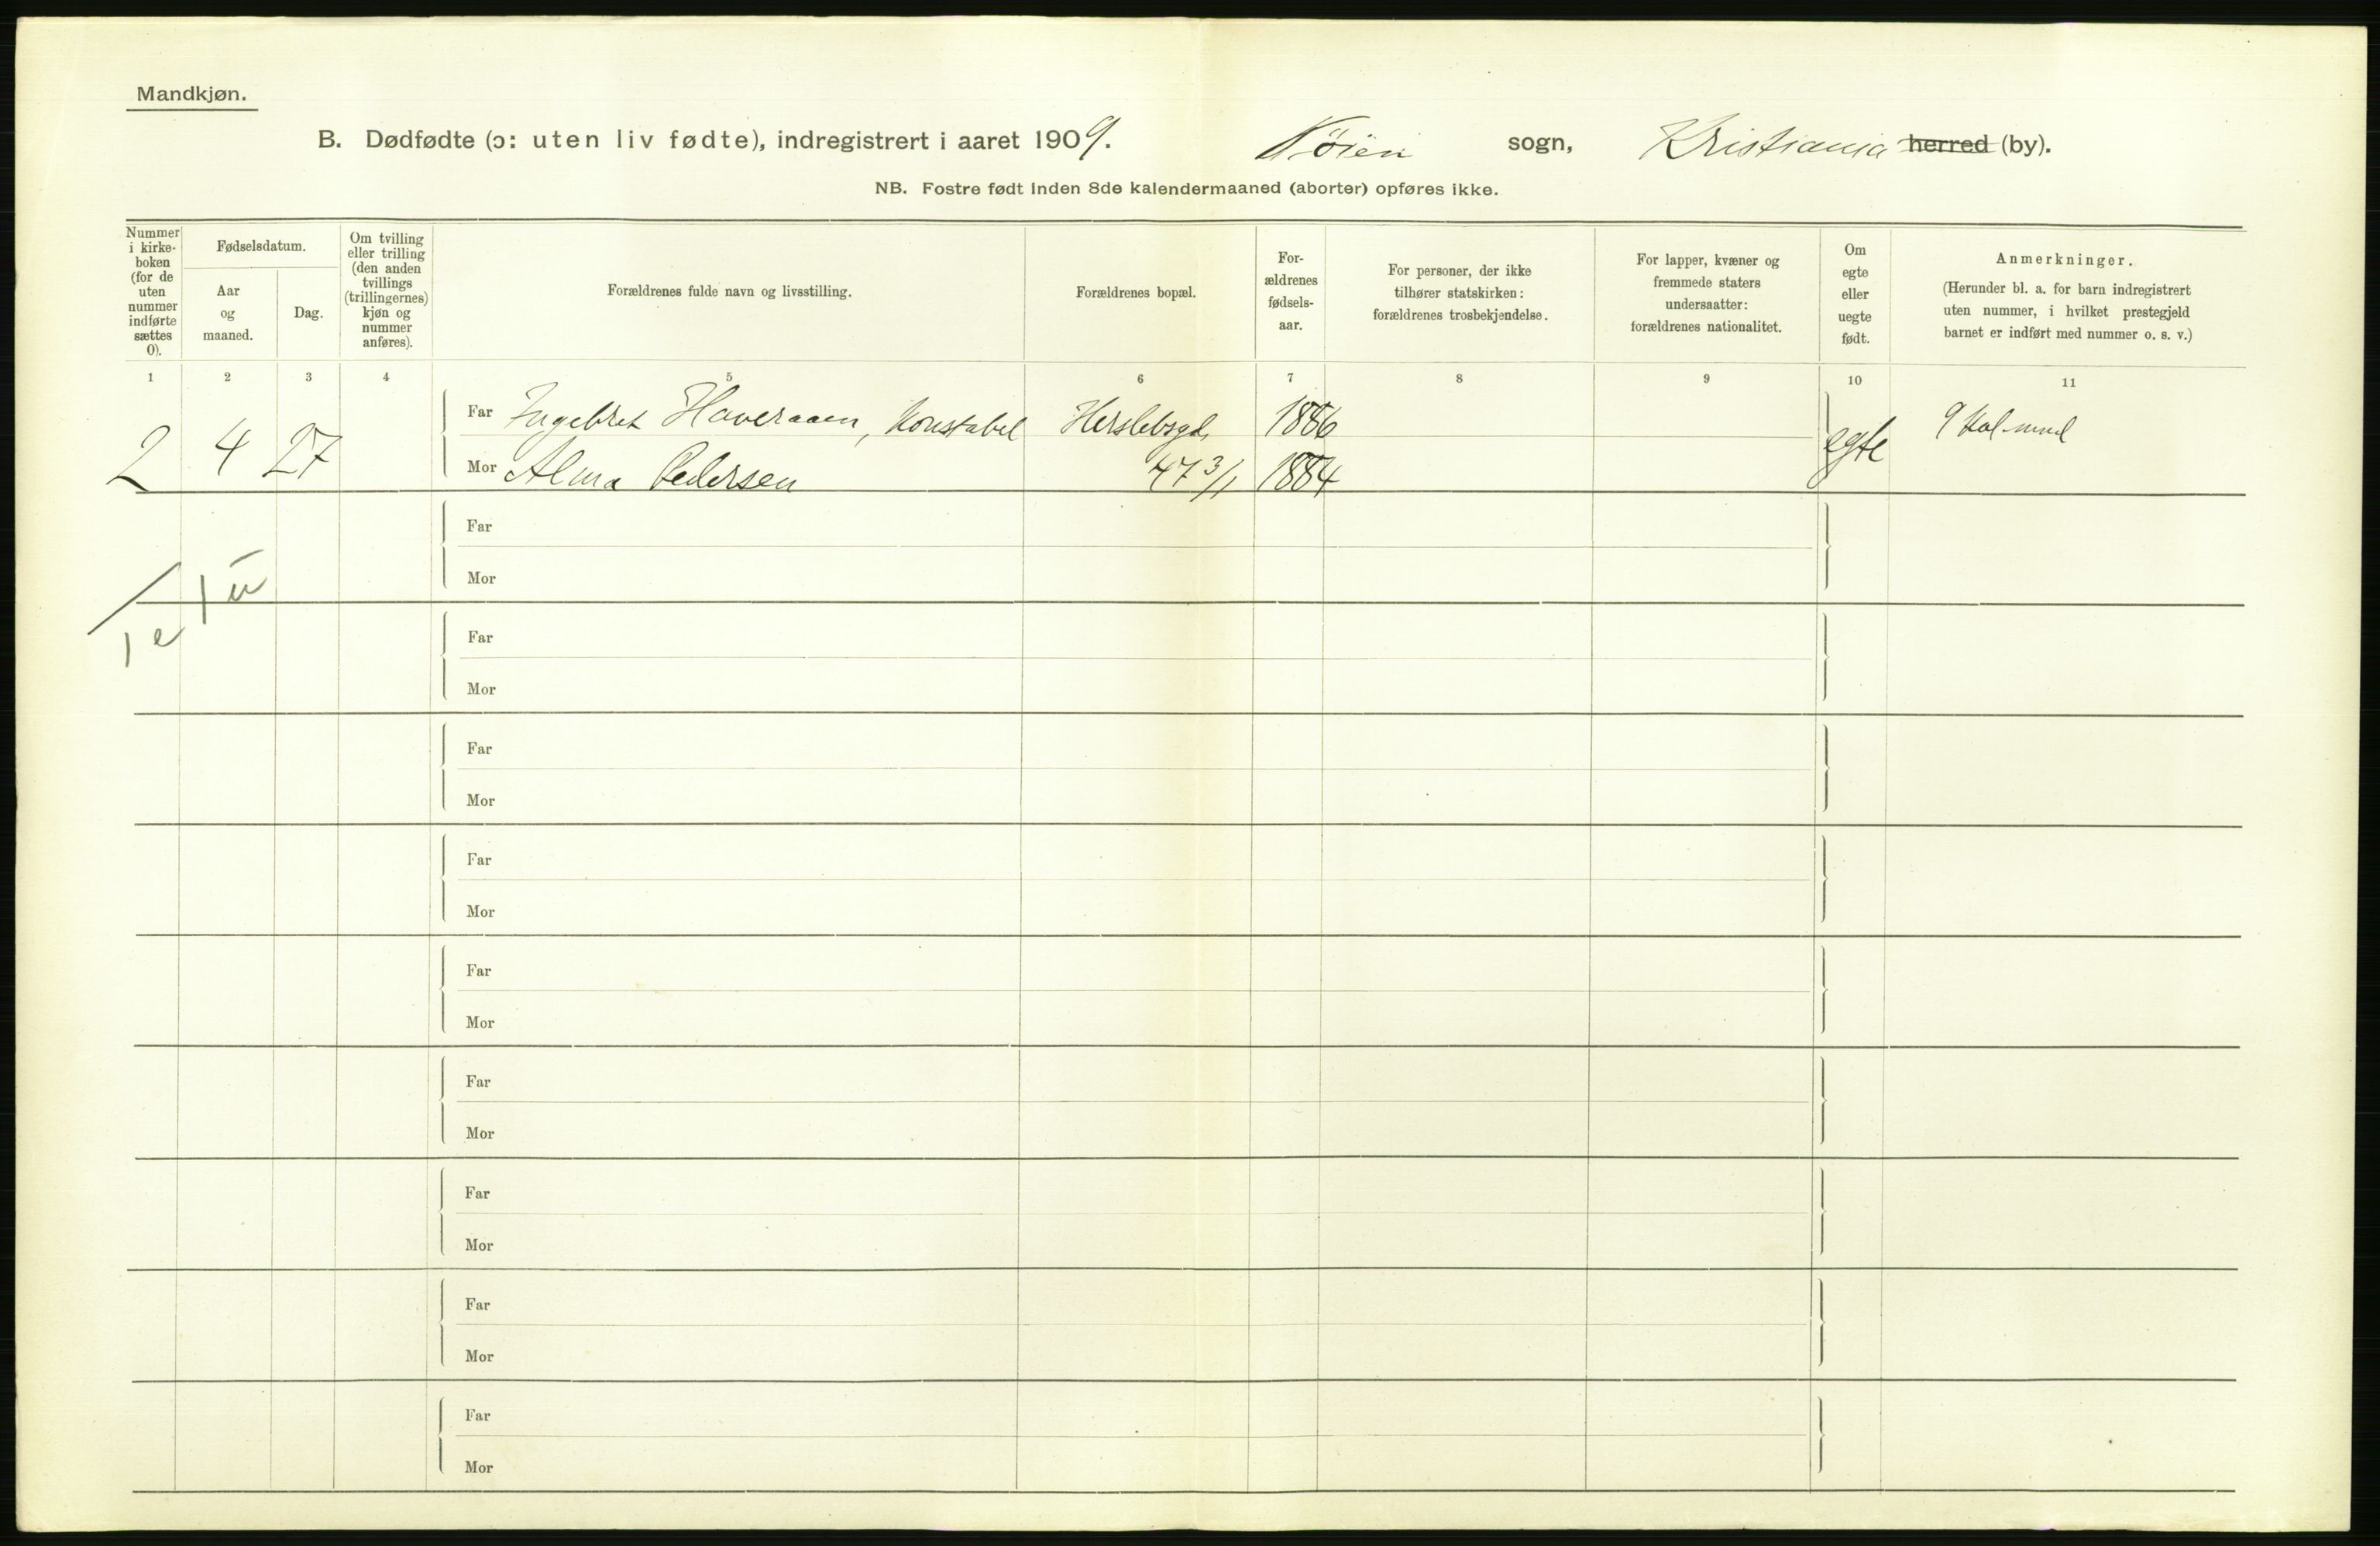 Mandkjøn.
B. Dødfødte (ɔ: uten liv fødte), indregistrert i aaret 1909. Tøien sogn, Kristiania herred (by).
NB. Fostre født inden 8de kalendermaaned (aborter) opføres ikke.
Nummer
i kirke-
boken
(for de
uten
nummer
indførte
sættes
0).
Fødselsdatum.
Aar
og
maaned.
Dag.
Om tvilling
eller trilling
(den anden
tvillings
(trillingernes)
kjøn og
nummer
anføres).
Forældrenes fulde navn og livsstilling.
Forældrenes bopæl.
For-
ældrenes
fødsels-
aar.
For personer, der ikke
tilhører statskirken:
forældrenes trosbekjendelse.
For lapper, kvæner og
fremmede staters
undersaatter:
forældrenes nationalitet.
Om
egte
eller
uegte
født.
Anmerkninger.
(Herunder bl. a. for barn indregistrert
uten nummer, i hvilket prestegjeld
barnet er indført med nummer o. s. v.)
1 2 3 4 5 6 7 8 9 10 11
Far Ingebret Haveraaen, Konstabel Herslebsgd. 1886
2 4 27 egte 9 Kal.mnd
Mor Alma Pedersen 47 3/1 1884
Far
Mor
1 u
1 e
Far
Mor
Far
Mor
Far
Mor
Far
Mor
Far
Mor
Far
Mor
Far
Mor
Far
Mor